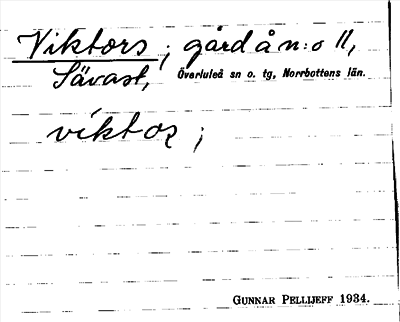 Viktors; gård å n:o 11,
Sävast, Överluleå sn o. tg, Norrbottens län.
viktoʂ;
GUNNAR PELLIJEFF 1934.